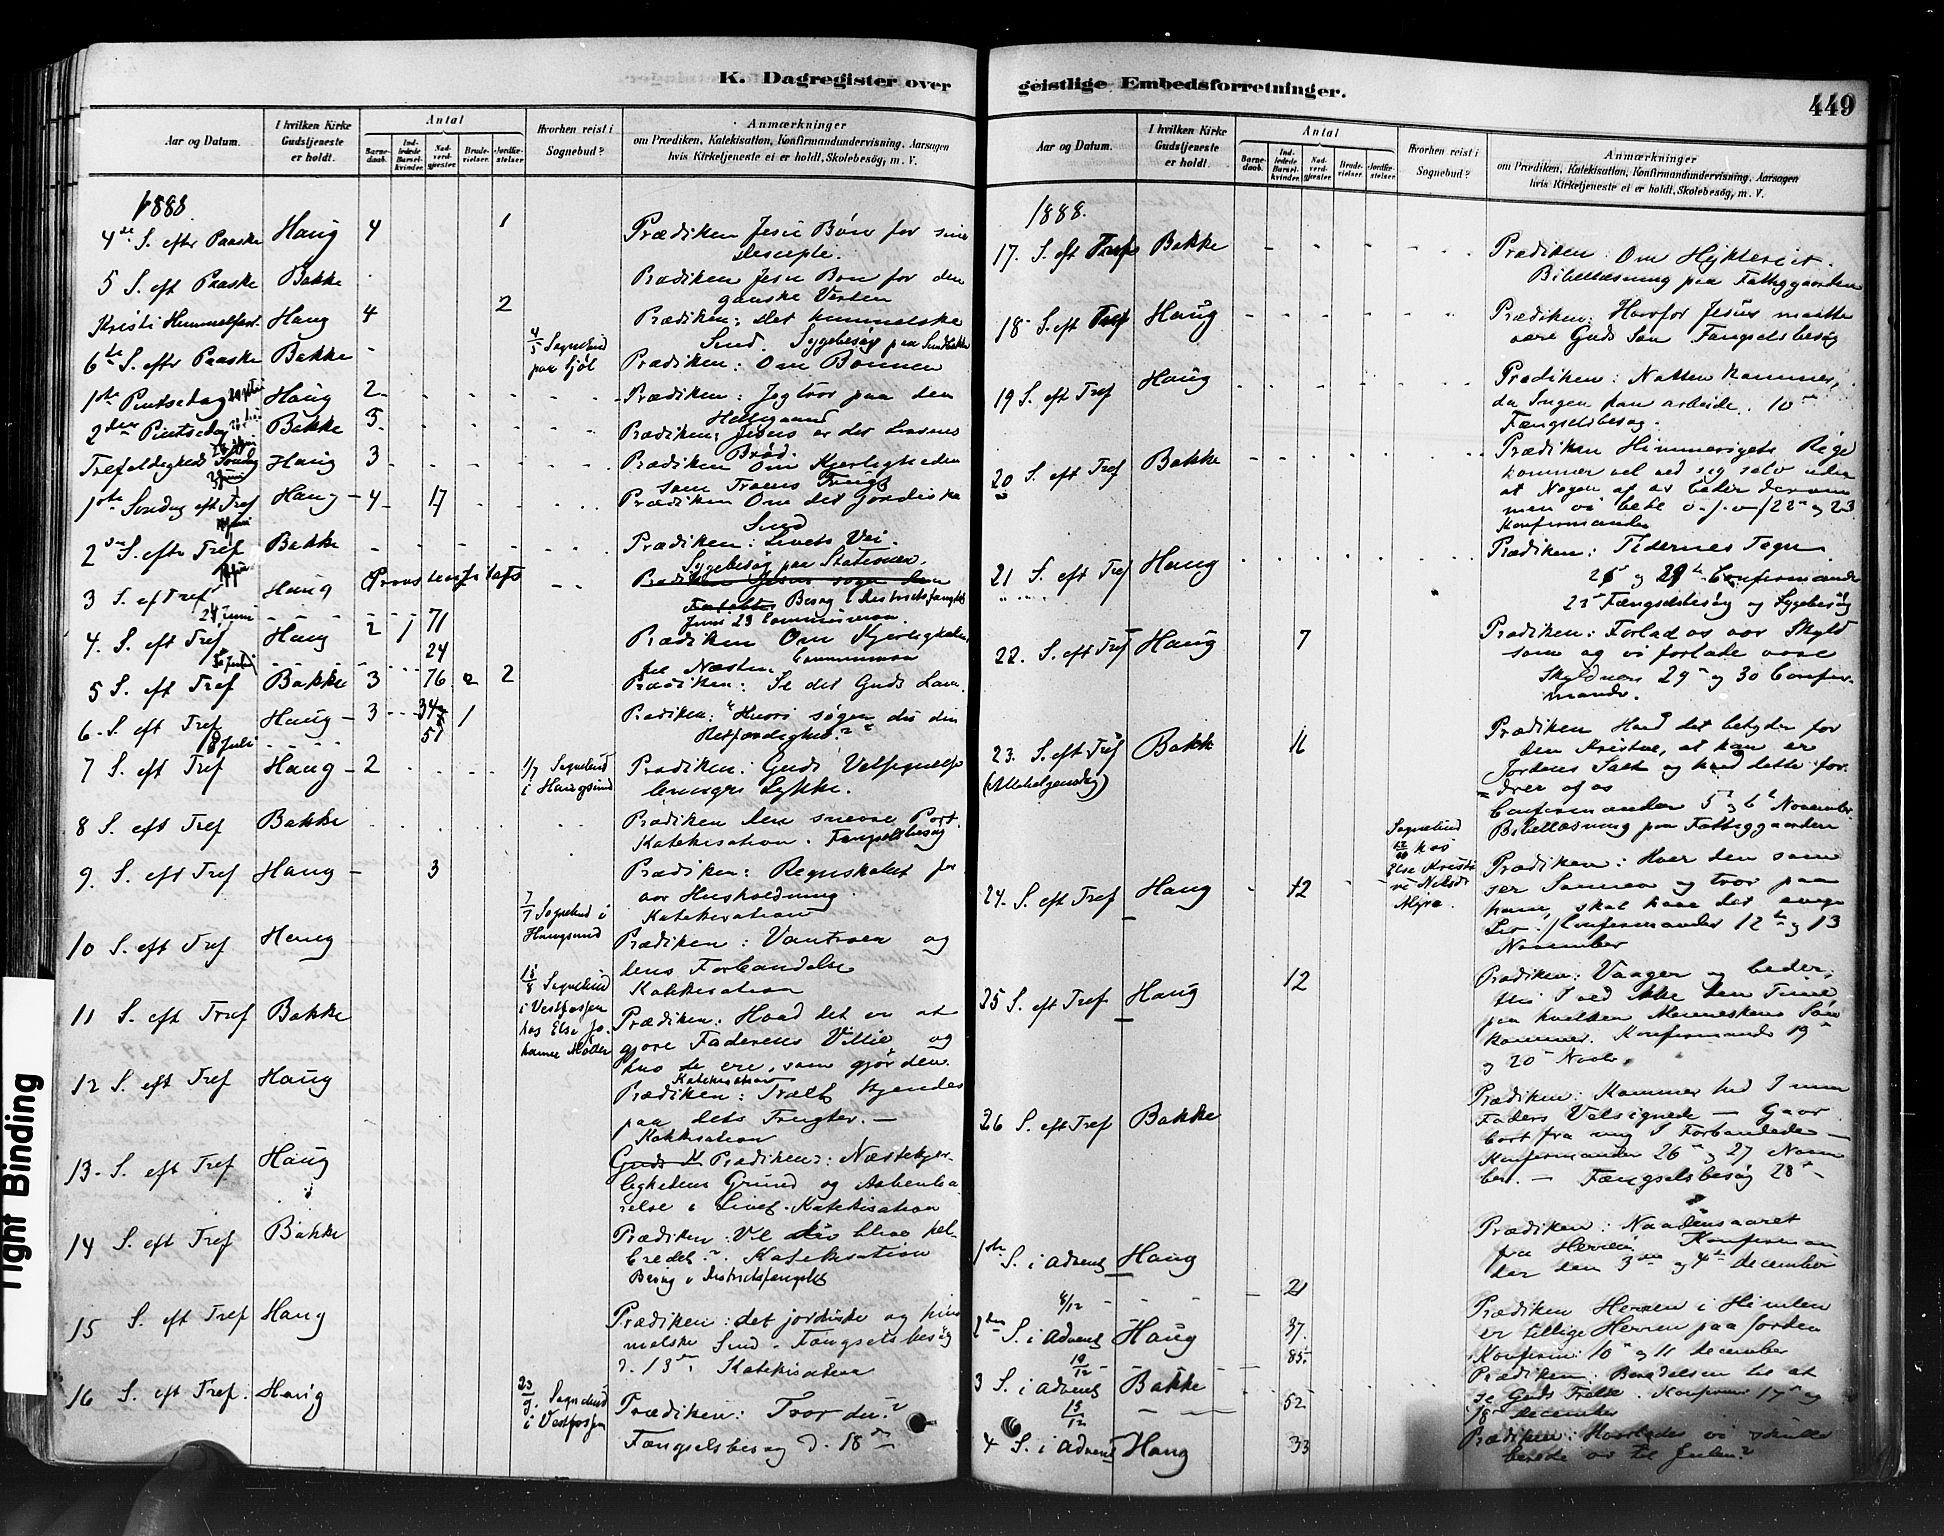 K. Dagregister over
Aar og Datum.
I hvilken Kirke Gudstjeneste er holdt.
Antal
Barne-daab.
Ind-ledede Barsel-kvinder.
Nad-verd-gjæster.
Brude-vielser.
Jordfæ-stelser.
Hvorhen reist i Sognebud?
Anmærkninger
om Prædiken, Katekisation, Konfirmandundervisning, Aarsagen
hvis Kirketjeneste ei er holdt, Skolebesøg, m. V.
1888
4de S. efter Paaske Haug 4 1 Prædiken Jesu Bøn for sine
Disciple.
5 S. eft Paaske Bakke Prædiken Jesu Bøn for den
ganske Verden
Kristi Himmelfart Haug 4 2 Prædiken: Det himmelske
Sind. Sygebesøg paa
6te S. efter Paaske Bakke 4/5 Sognebud Prædiken: Om Bønnen
1ste Pintsedag Haug 2 Prædiken: Jeg tror paa den
Helligaand
2den Pintsedag Bakke 5 Prædiken: Jesus er det levende
Brød.
Trefoldigheds Søndag Haug 3 Prædiken Om Kjerligheden
som Troens Frugt
1ste Søndag eft Tref Haug 4 17 Prædiken Om det jordiske
Sind
2den S. efter Tref Bakke Prædiken: Livets Vei.
Sygebesøg paa Stationen
3 S. eft Tref Haug
Besøg i Distriktsfængslet
24 Juni 71 Juni 23 Communion.
4. S. eft Tref Haug 2 1 24 Prædiken Om Kjerligheden
til Næsten. Communion
5 S. eft Tref Bakke 3 76 2 2 Prædiken: Se det Guds Lam
6 S. eft Tref Haug 3 34 1 Prædiken: "Hvori søger du din
8 Juli 51 Retfærdighed?"
7 S. eft Tref Haug 2 1/7 Sognebud Prædiken: Guds Velsignelse
i Haugsund Lykke.
8 S. eft Tref Bakke Prædiken den snevre Port.
Katekisation. Fængselsbesøg
9. S. eft Tref Haug 3 Prædiken: Regnskabet for
vor Husholdning.
7/7 Sognebud i Katekisation
Haugsund
10 S. eft Tref Haug Prædiken: Vantroen og
dens Forbandelse
Sognebud Katekisation
11 S. eft Tref Bakke i Vestfossen Prædiken: Hvad det er at
hos Else Jo- gjøre Faderens Villie og
hanne Møller hvo de ere, som gjør den.
Katekisation
12 S. eft Tref Haug Prædiken: Træet kjendes
paa dets Frugter. —
Katekisation
13. S. eft Tref Haug Prædiken: Næstekjer-
lighedens Grund og Aabenba-
relse i Livet. Katekisation
14 S. eft Tref Bakke Prædiken: Vil du blive hel-
bredet? Katekisation
Besøg i Distriktsfængslet
15 S. eft Tref Haug Prædiken: det jordiske og him
melske Sind. Fængselsbesøg
d. 13de. Katekisation
16 S. eft Tref. Haug 23/9. Sognebud Prædiken: Tror du?
i Vestfossen Fængselsbesøg d. 18de
geistlige Embedsforretninger.
449
Aar og Datum.
I hvilken Kirke Gudstjeneste er holdt.
Antal
Barne-daab.
Ind-ledede Barsel-kvinder.
Nad-verd-gjæster.
Brude-vielser.
Jordfæ-stelser.
Hvorhen reist i Sognebud?
Anmærkninger
om Prædiken, Katekisation, Konfirmandundervisning, Aarsagen
hvis Kirketjeneste ei er holdt, Skolebesøg, m. V.
1888.
17. S. eft Tref Bakke Prædiken: Om Hykleriet.
Bibellæsning paa Fattiggaarden
18 S. eft Tref Haug Prædiken: Hvorfor Jesus maatte
være Guds Søn Fængselsbesøg
19 S. eft Tref Haug Prædiken: Natten kommer,
da Ingen kan arbeide. 10de
Fængselsbesøg.
20 S. eft Tref Bakke Prædiken Himmerigets Rige
kommer vel ved sig selv uden
at Nogen af os beder derom
men vi bede o.s.v. 22de og 23
Konfirmander
21 S. eft Tref Haug Prædiken: Tidernes Tegn
Confirmander
Fængselsbesøg og Sygebesøg
22. S. eft Tref Haug 7 Prædiken: Forlad os vor Skyld
som og vi forlade vore
Skyldnere 29de og 30 Confir-
mander.
23. S. eft Tref Bakke 16 Prædiken Hvad det betyder for
(Allehelgensdag) den Kristne, at han er
Jordens Salt og hvad dette for-
drer af os
Confirmander 5te og 6te November
Sognebud Bibellæsning paa Fattiggaarden
hos
24. S. eft Tref Haug 12 Else Kristi Prædiken: Hver den som
ne Nilsdr ser Sønnen og tror paa
Myra. ham, skal have det evige
Liv. Konfirmander 12te og 13
November
25 S. eft Tref Haug 12 Prædiken: Vaager og beder,
thi I ved ikke den Time
paa hvilken Menneskens Søn
kommer. Konfirmander 19de
og 20de Novbr.
26 S. eft Tref Bakke Prædiken: Kommer hid I min
Faders Velsignede — Gaar
bort fra mig I Forbandede —
Konfirmander 26de og 27 Novem
ber. — Fængselsbesøg 28de
1ste S. i Advent Haug Prædiken: Naadensaaret
fra Herren. Konfirman
der den 3die og 4de December
8/12 21
2den S. i Advent Haug 37. Prædiken Herren i Himlen
er tillige Herren paa Jorden
85. Konfirm: 10de og 11 December
3 S. i Advent Bakke Prædiken: Beredelsen til at
15/12 52 se Guds Frelse. Konfirm: 17de og
18de December
4 S. i Advent Haug 33 Prædiken: Hvorledes vi skulle
berede os til Julen?
Tight Binding